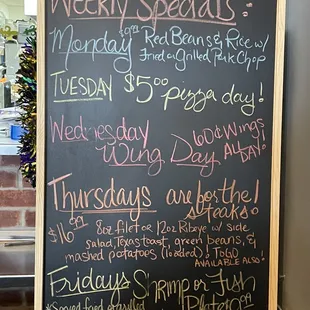 Weekly Specials:
Monday $9.99 Red Beans & Rice w/
Fried or Grilled Pork Chop
Tuesday $5.00 pizza day!
Wednesday
Wing Day
60¢ Wings
All Day!
Thursdays are for the
Steaks!
$16.99
8oz filet or 12oz Ribeye w/ side
salad, Texas toast, green beans, &
mashed potatoes (loaded)! ToGo
Available Also!
Fridays Shrimp or Fish
*Served fried or grilled
Platter